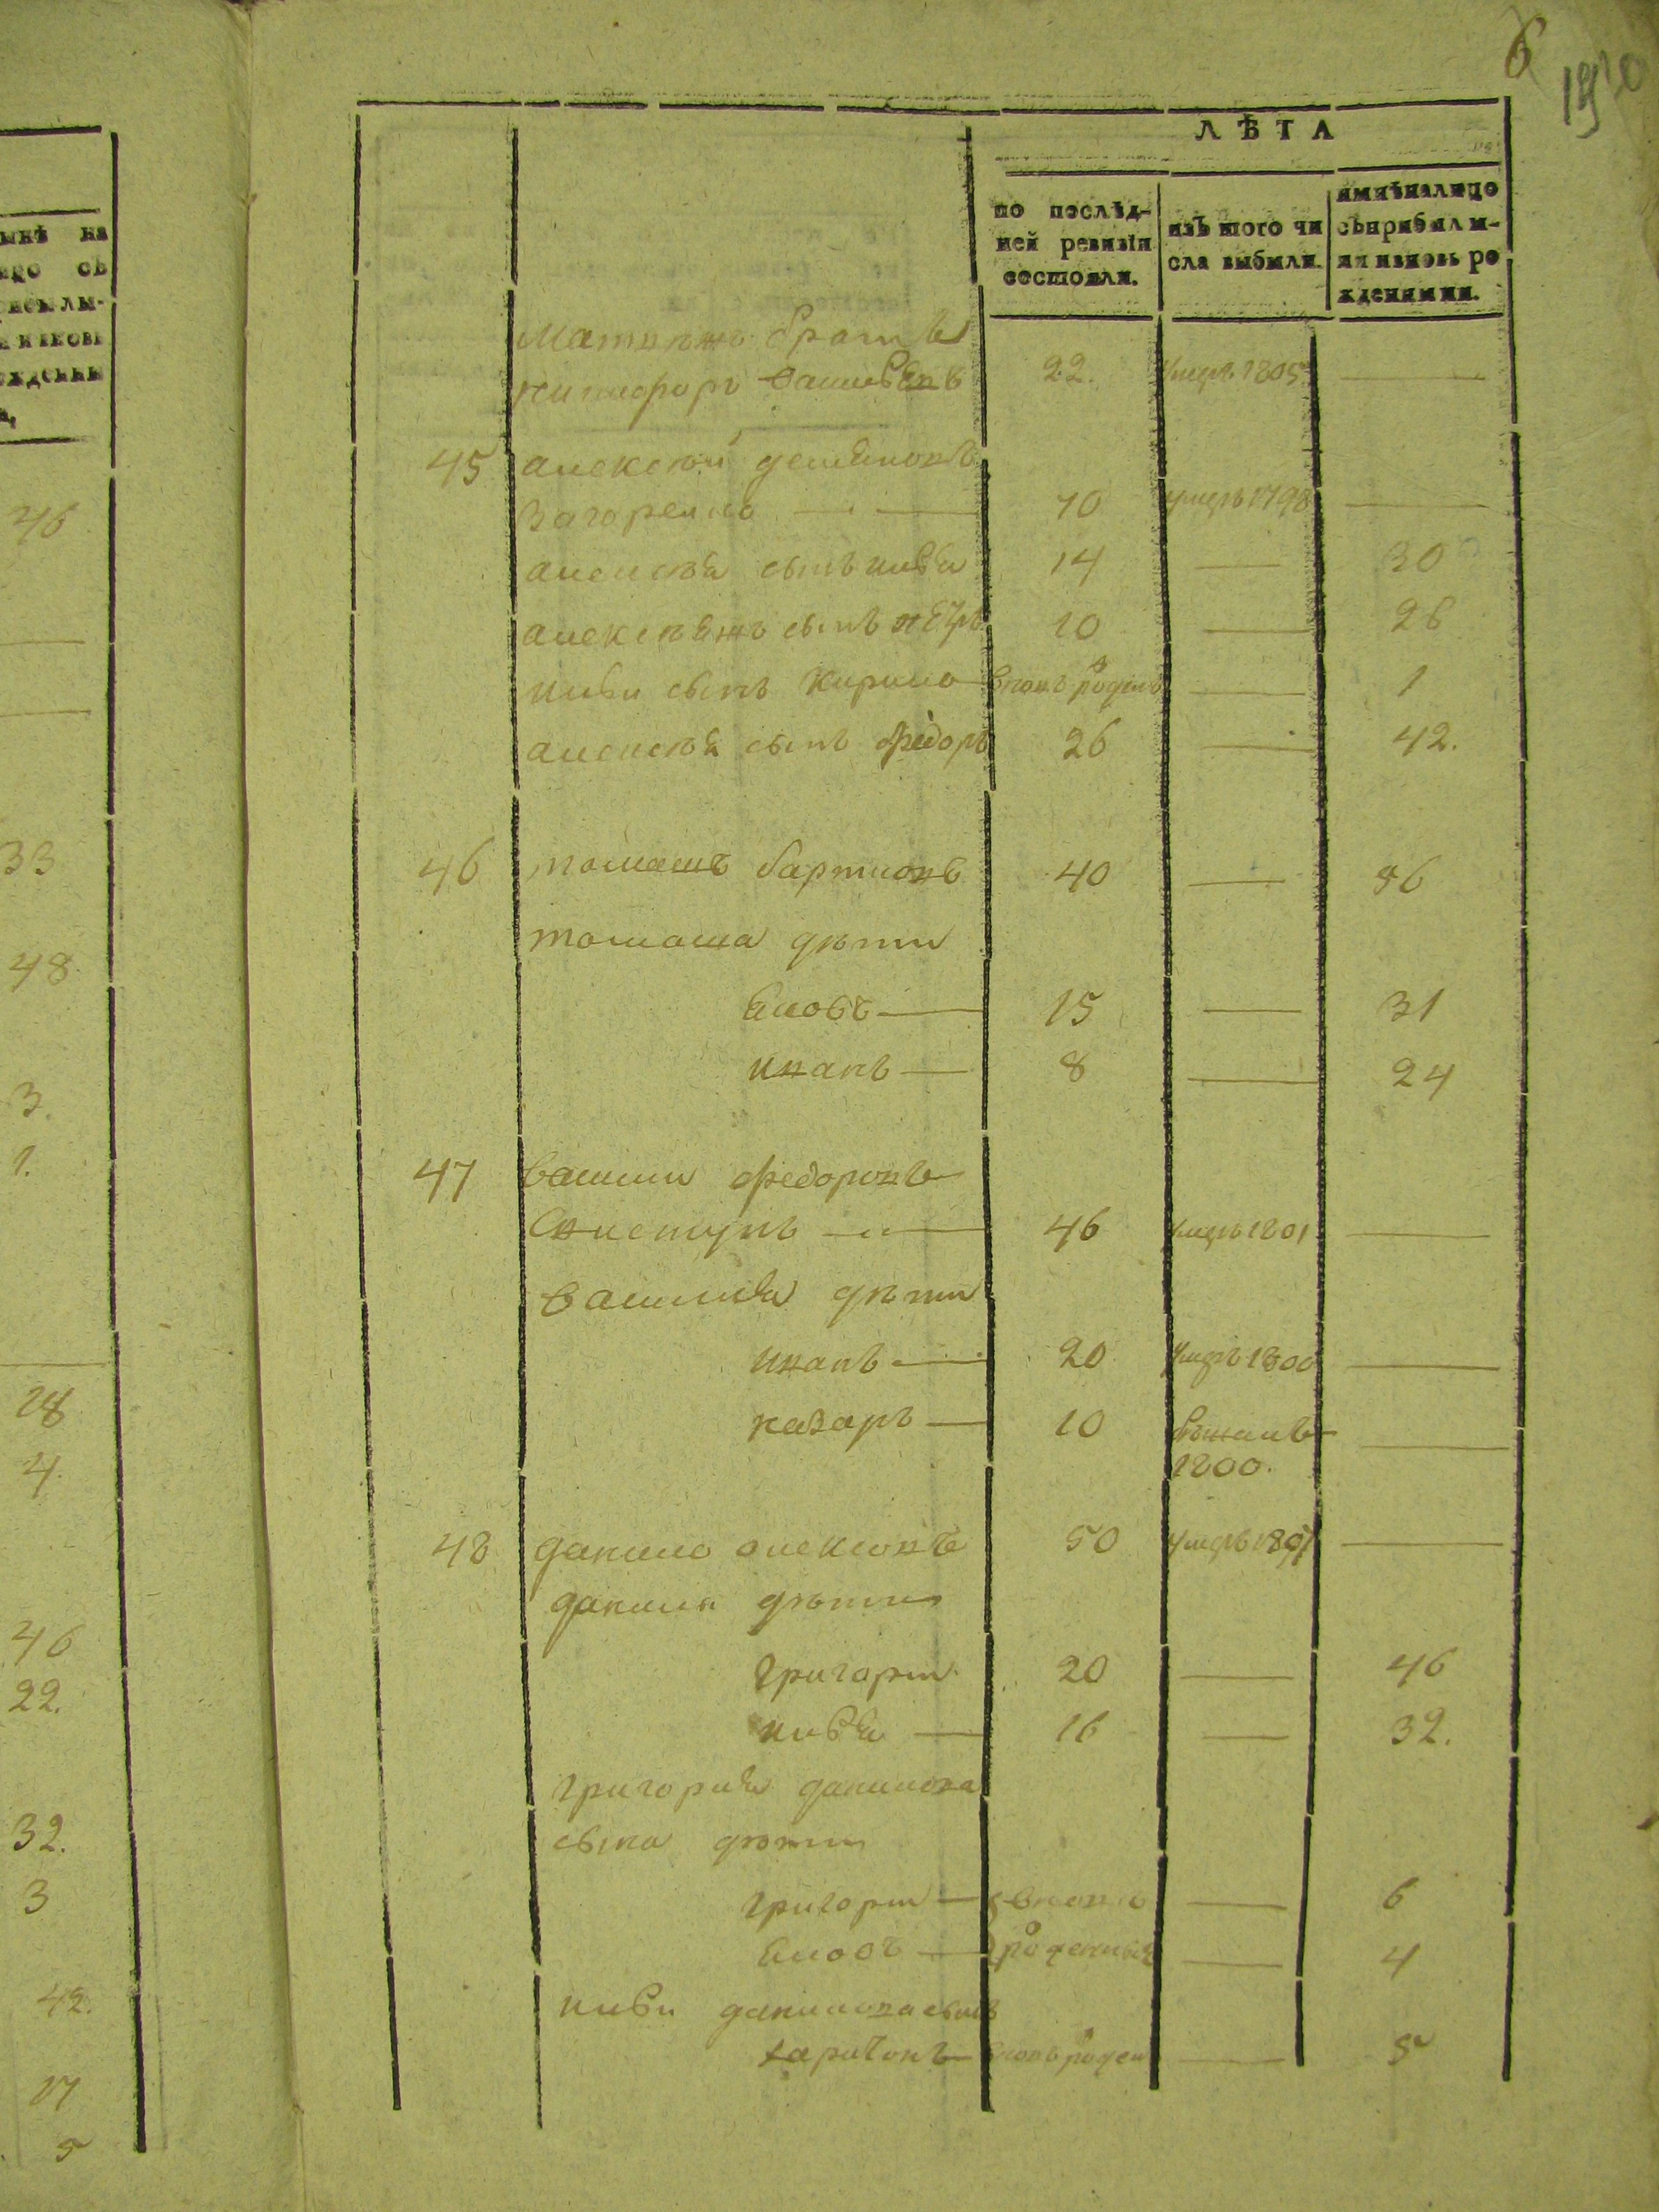 6
19
ЛѢТА
по послѣд-
ней ревизіи
состояли.
изъ того чи
сла выбыли.
нынѣ на лицо
съ прибылы-
ми и вновь ро
жденными.
Матвѣевъ братъ
Никифоръ 22. умеръ 1805 —
45 алексѣй демяновъ
Загорелко — 70 умеръ 1798 —
алексѣя сынъ илья 14 — 30
алексѣевъ сынъ петръ 10 — 26
ильи сынъ Кирило вновь рожденъ — 1
алексѣя сынъ федоръ 26 — 42.
46 томашъ бартковъ 40 — 56
томаша дѣти
Яковъ — 15 — 31
иванъ — 8 — 24
47 василий федоровъ
Свистунъ — 46 умеръ 1801 —
василия дѣти
иванъ — 20 умеръ 1800 —
назаръ — 10 бѣжалъ —
1800.
48 данило алексѣевъ 50 умеръ 1807 —
данила дѣти
григорий 20 — 46
илья — 16 — 32.
григория данилова
сына дѣти
григорий — вновь — 6
Яковъ — рожденные — 4
ильи данилова сынъ
харитонъ — вновь рожден — 5
46
33
48
3.
1.
18
4.
46
22.
32.
3
42.
17
5